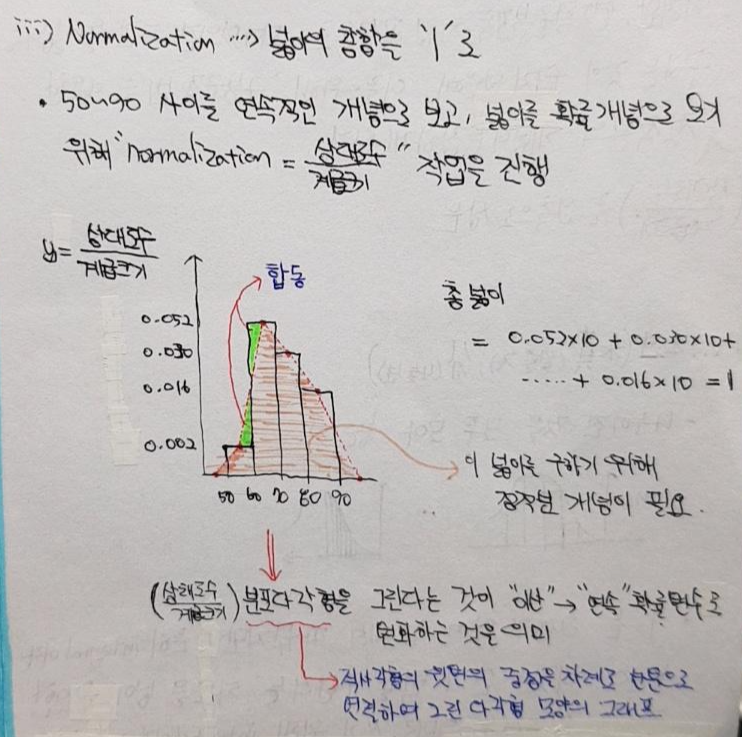 iii) Normalization ···> 넓이의 총합을 '1'로
• 50~90 사이를 연속적인 개념으로 보고, 넓이를 확률개념으로 보기
위해 "normalization = 상대도수/계급크기" 작업을 진행
y = 상대도수/계급크기
합동
0.052
0.030
0.016
0.002
50 60 70 80 90
총 넓이
= 0.052×10 + 0.030×10+
····· + 0.016×10 = 1
이 넓이를 구하기 위해
정적분 개념이 필요.
(상대도수/계급크기) 분포다각형을 그린다는 것이 "이산"→"연속"확률변수로
변화하는 것을 의미
직사각형의 윗변의 중점을 차례로 선분으로
연결하여 그린 다각형 모양의 그래프